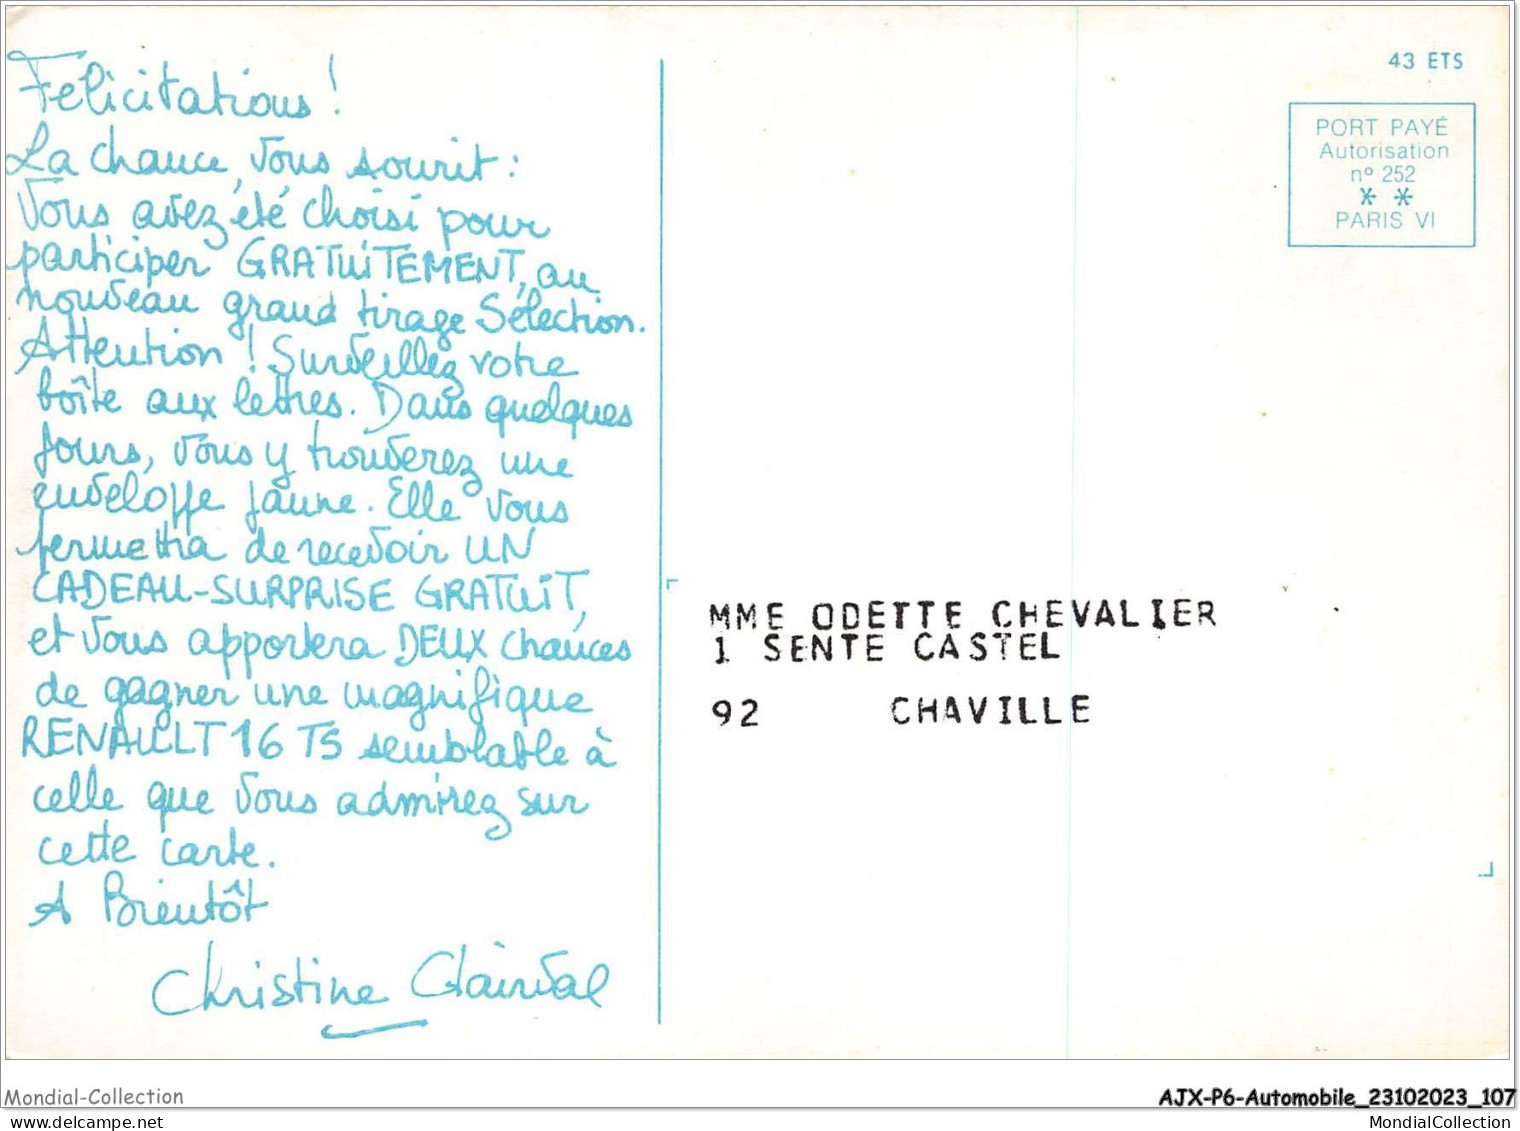 Felicitations !
La chance, vous sourit :
Vous avez été choisi pour
participer GRATUITEMENT, au
nouveau grand tirage Sélection.
Attention ! Surveillez votre
boîte aux lettres. Dans quelques
jours, vous y trouverez une
enveloppe jaune. Elle vous
permettra de recevoir UN
CADEAU-SURPRISE GRATUIT,
et vous apportera DEUX chances
de gagner une magnifique
RENAULT 16 TS semblable à
celle que vous admirez sur
cette carte.
A Bientôt
Christine Clairval
43 ETS
PORT PAYÉ
Autorisation
nº 252
* *
PARIS VI
MME ODETTE CHEVALIER
1 SENTE CASTEL
92 CHAVILLE
Mondial-Collection
AJX-P6-Automobile_23102023_107
MondialCollection